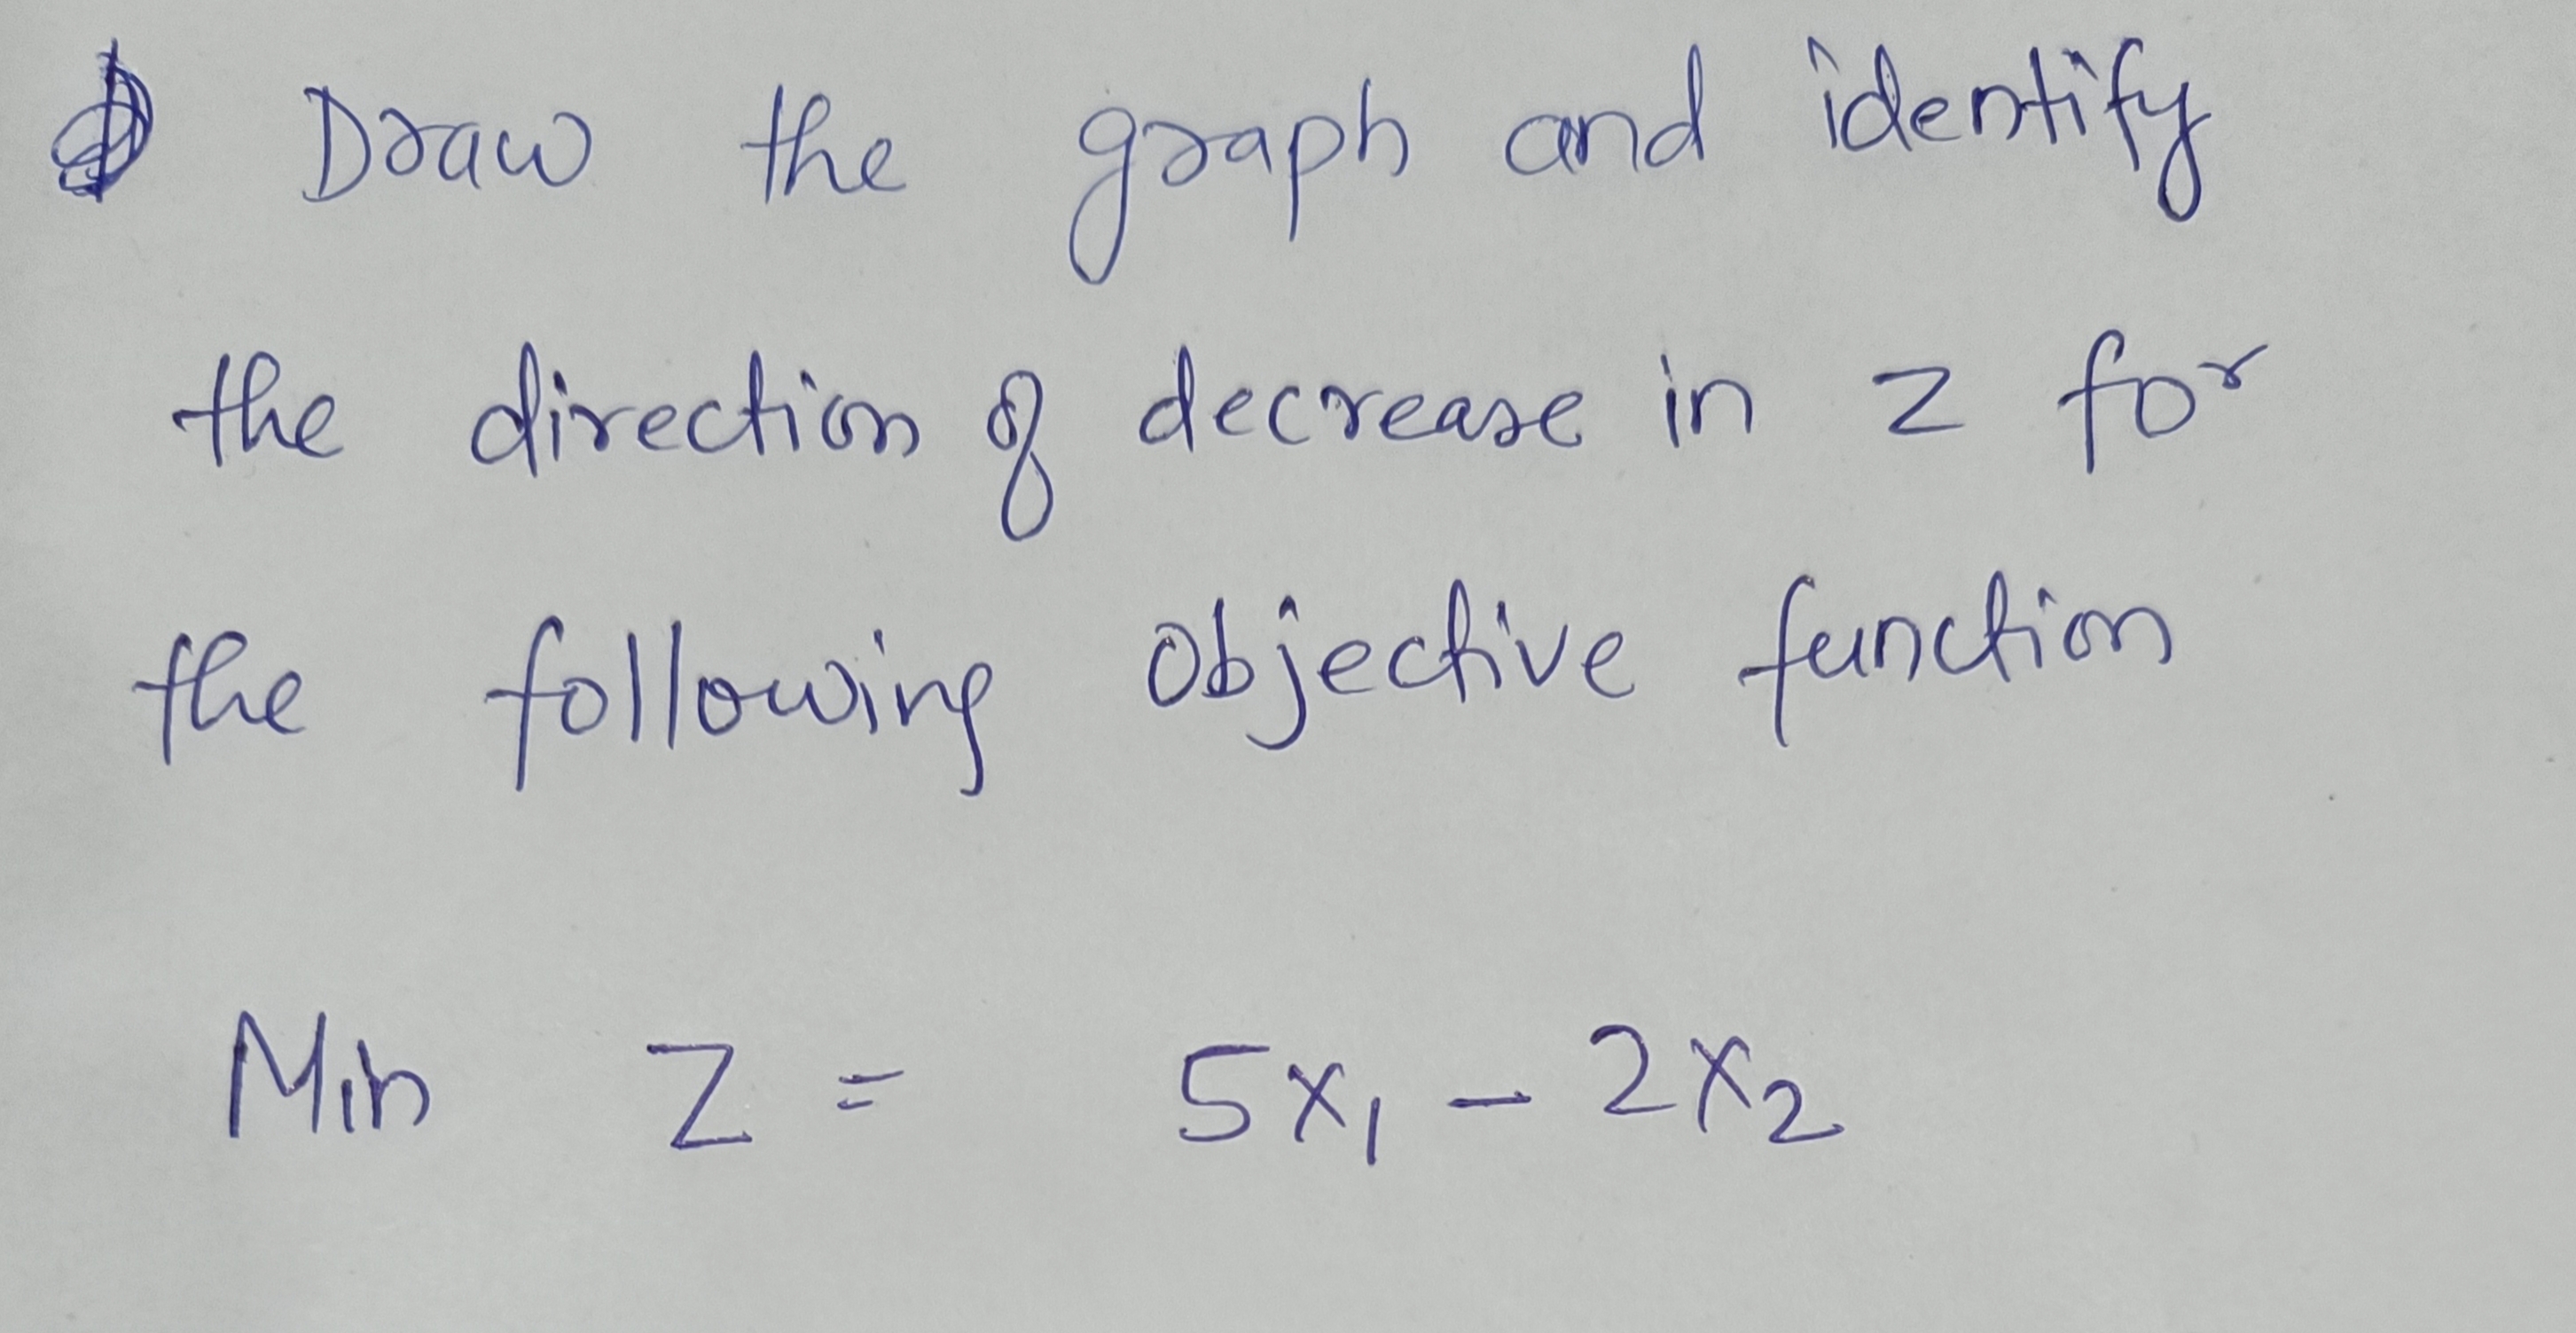 Draw the graph and identify
the direction of decrease in z for
the following objective function
Min Z = 5x₁ - 2x₂